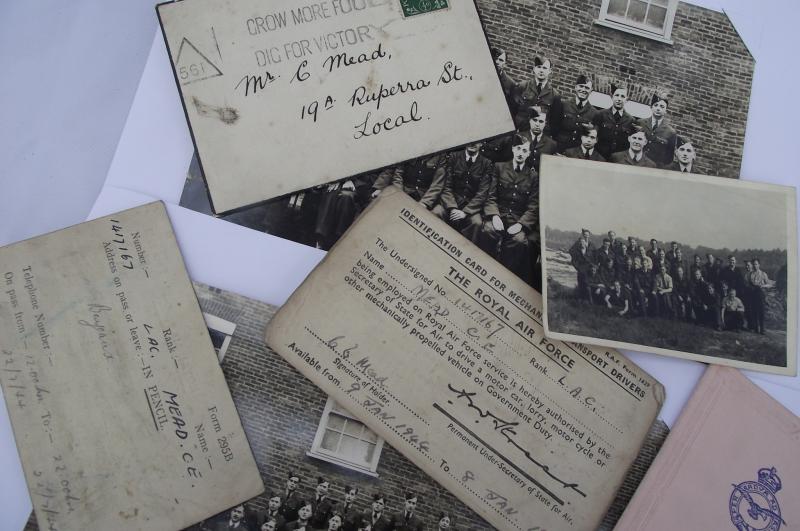 GROW MORE FOOD
DIG FOR VICTORY
561
Mr. C Mead,
19A Ruperra St.,
Local.
IDENTIFICATION CARD FOR MECHANICAL TRANSPORT DRIVERS
THE ROYAL AIR FORCE
R.A.F. Form 1629
The Undersigned No. 1417167 Rank L.A.C.
Name MEAD C.E.
being employed on Royal Air Force service is hereby authorised by the
Secretary of State for Air to drive a motor car, lorry, motor cycle or
other mechanically propelled vehicle on Government Duty.
C E Mead
Signature of Holder.
Permanent Under-Secretary of State for Air.
Available from 9 JAN 1944 To 8 JAN
Form 295B
Number:— Rank:— Name:—
1417167 LAC. MEAD. C.E.
Address on pass or leave:— IN PENCIL.
Telephone Number:—
On pass from To:—